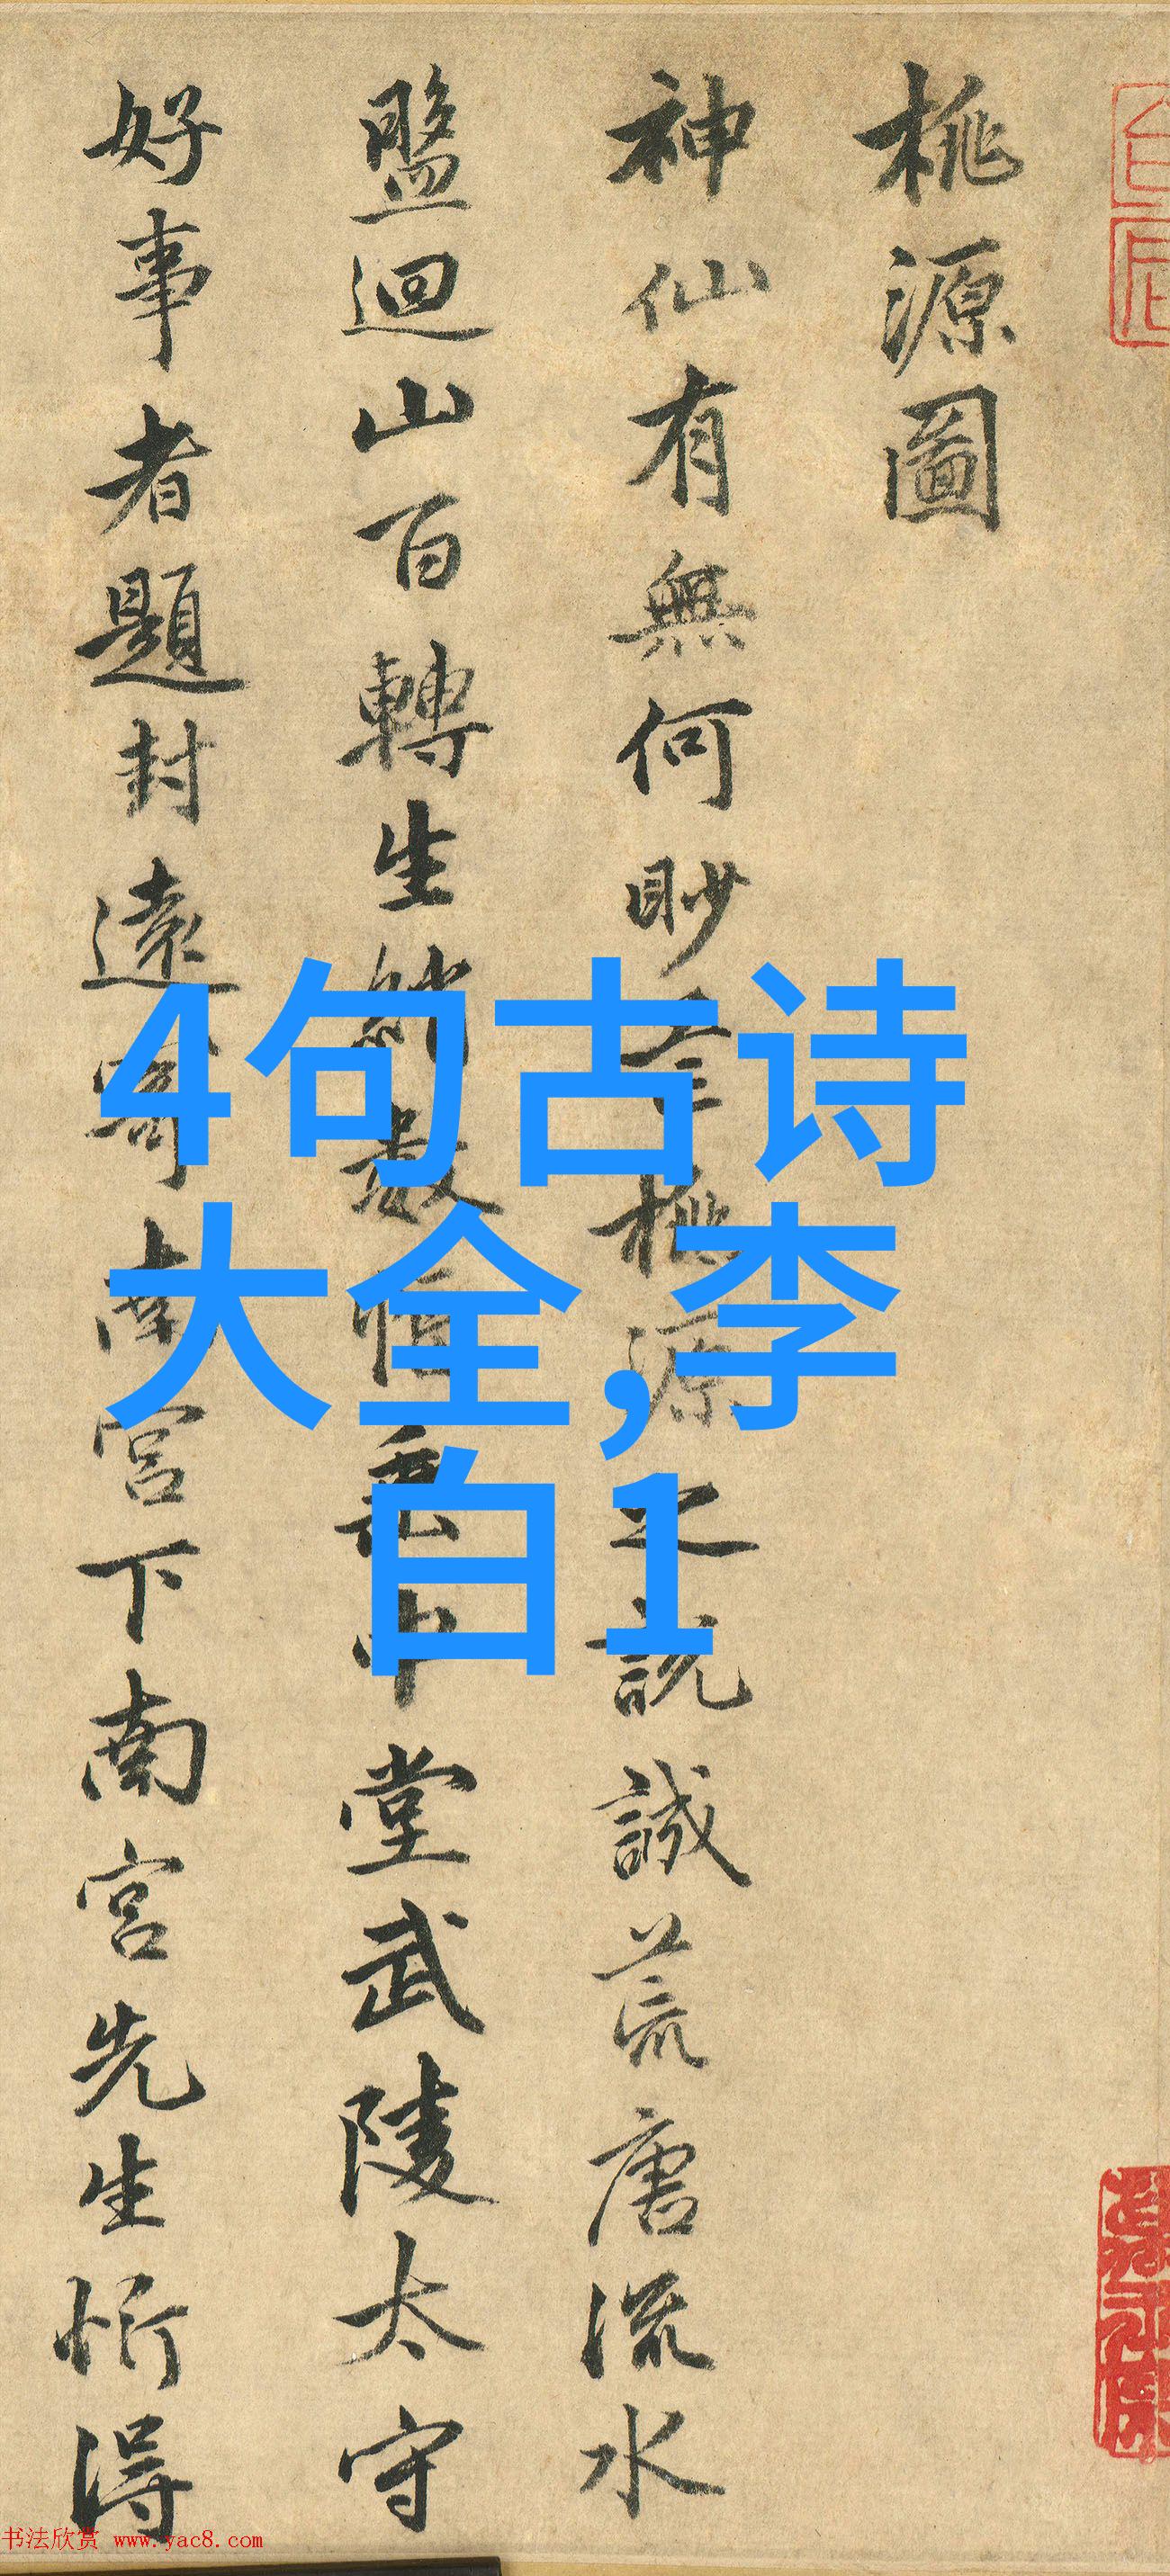 桃源圖
神仙有無何眇芒桃源之說誠荒唐流水
盤迴山百轉生綃數幅垂中堂武陵太守
好事者題封遠寄南宮下南宮先生忻得
4句古诗
大全,李
白1
书法欣赏 www.yac8.com